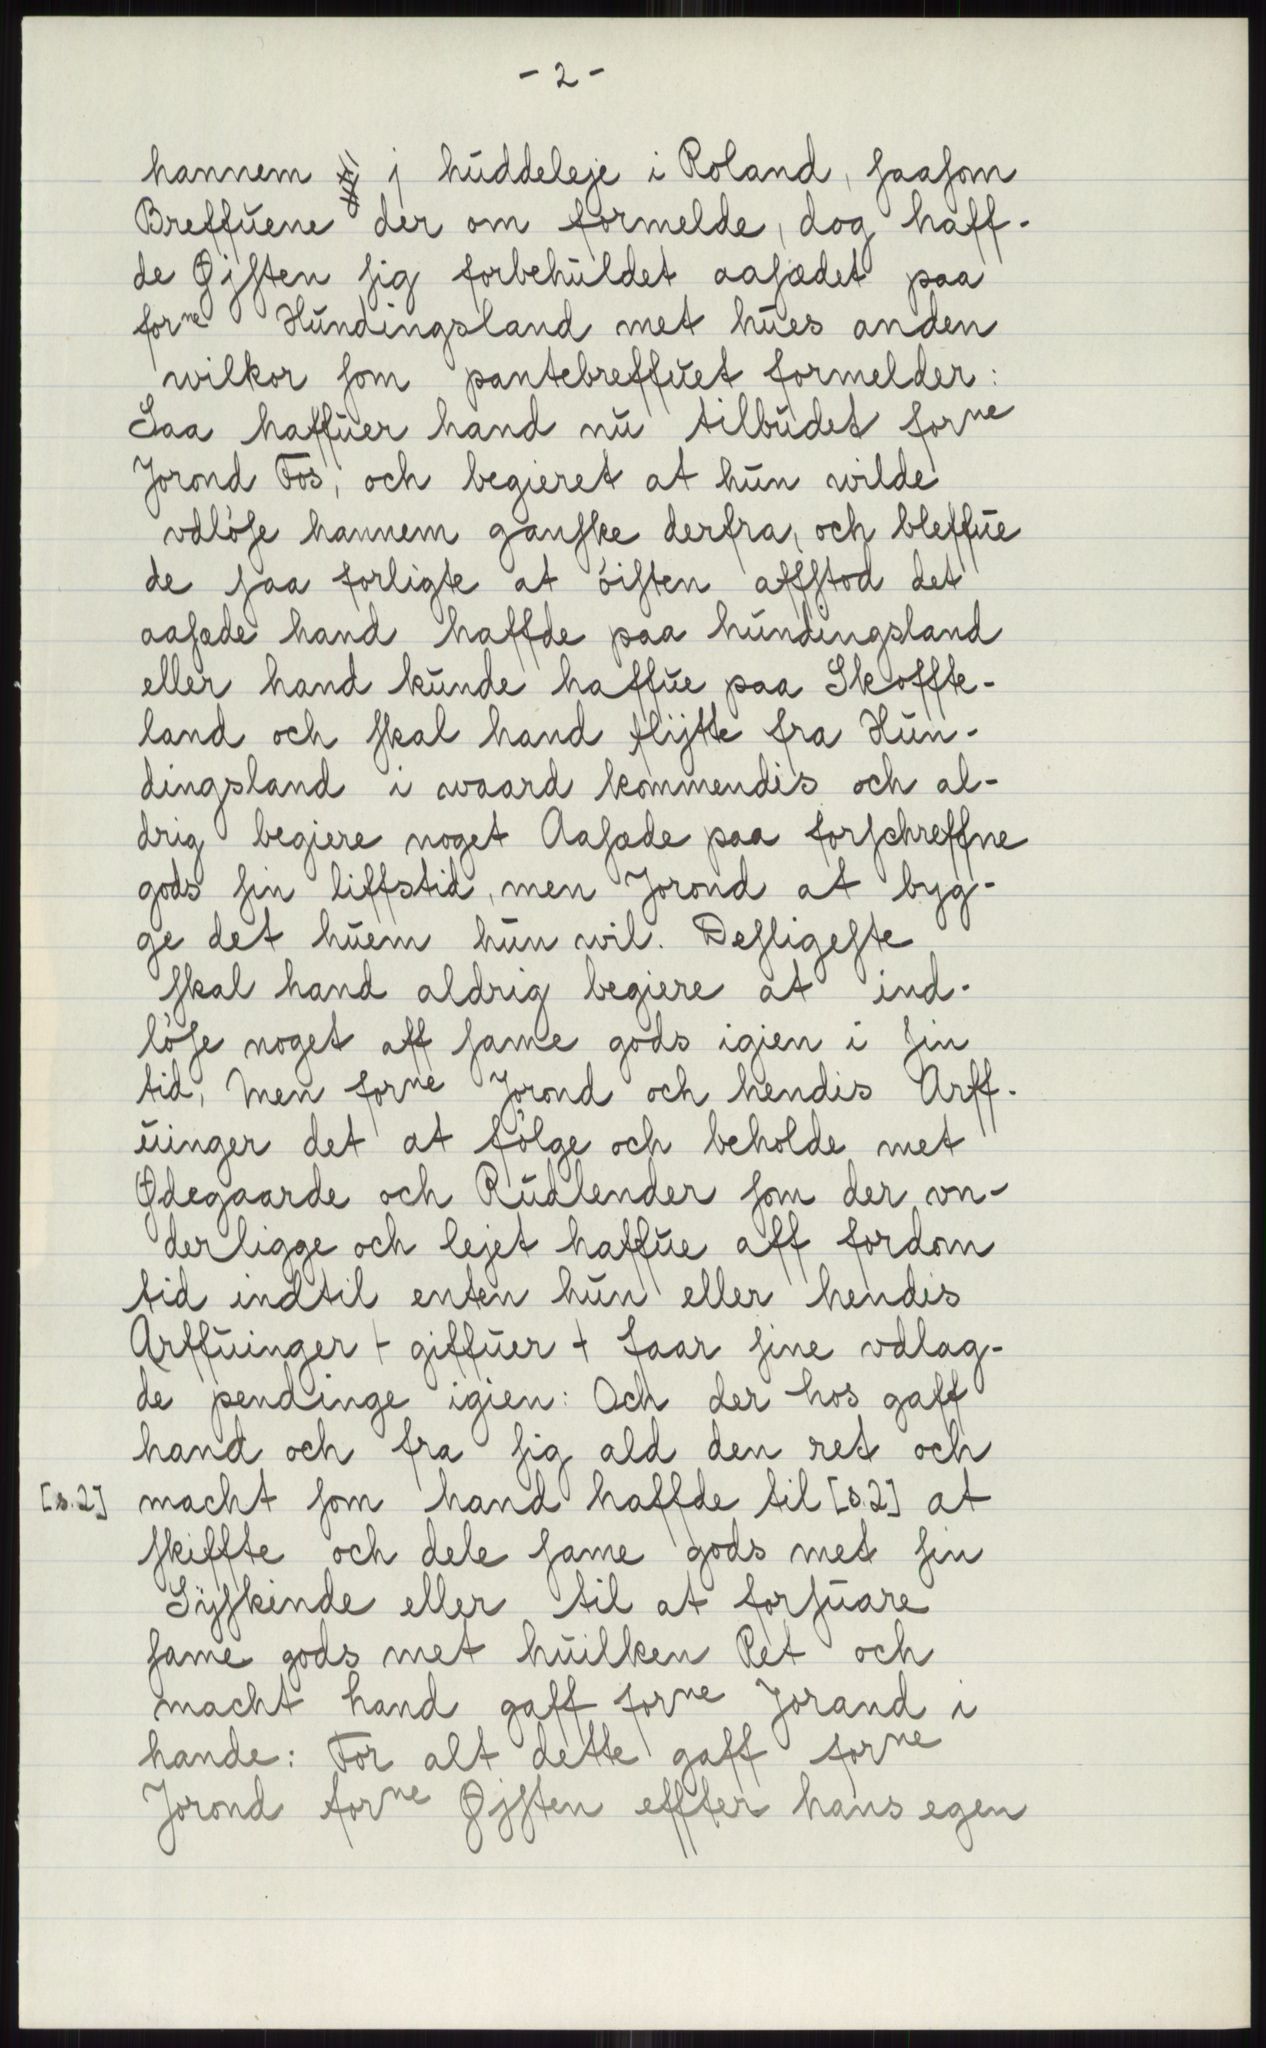 - 2 -
hannem j huddeleje i Roland, saasom
Breffuene der om formelde, dog haff-
de Øjsten sig forbehuldet aasædet paa
forne Hundingsland met hues anden
wilkor som pantebreffuet formelder:
Saa haffuer hand nu tilbudet forne
Jorond Fos, och begieret at hun wilde
vdløse hannem ganske derfra, och bleffue
de saa forligte at öisten affstod det
aasæde hand haffde paa hundingsland
eller hand kunde haffue paa Skoffte-
land och skal hand flijtte fra Hun-
dingsland i waard kommendis och al-
drig begiere noget Aasæde paa forschreffne
gods sin liffstid, men Jorond at byg-
ge det huem hun wil. Desligeste
skal hand aldrig begiere at ind-
løse noget aff same gods igien i sin
tid, Men forne Jorond och hendis Arff-
uinger det at følge och beholde met
Ødegaarde och Rudlender som der vn-
derligge och lejet haffue aff fordom
tid indtil enten hun eller hendis
Arffuinger + giffuer + faar sine vdlag-
de pendinge igien: Och der hos gaff
hand och fra sig ald den ret och
[s.2] macht som hand haffde til [s.2] at
skiffte och dele same gods met sin
Sÿskinde eller til at forsuare
same gods met huilken Ret och
macht hand gaff forne Jorand i
hande: For alt dette gaff forne
Jorond forne Øjsten effter hans egen